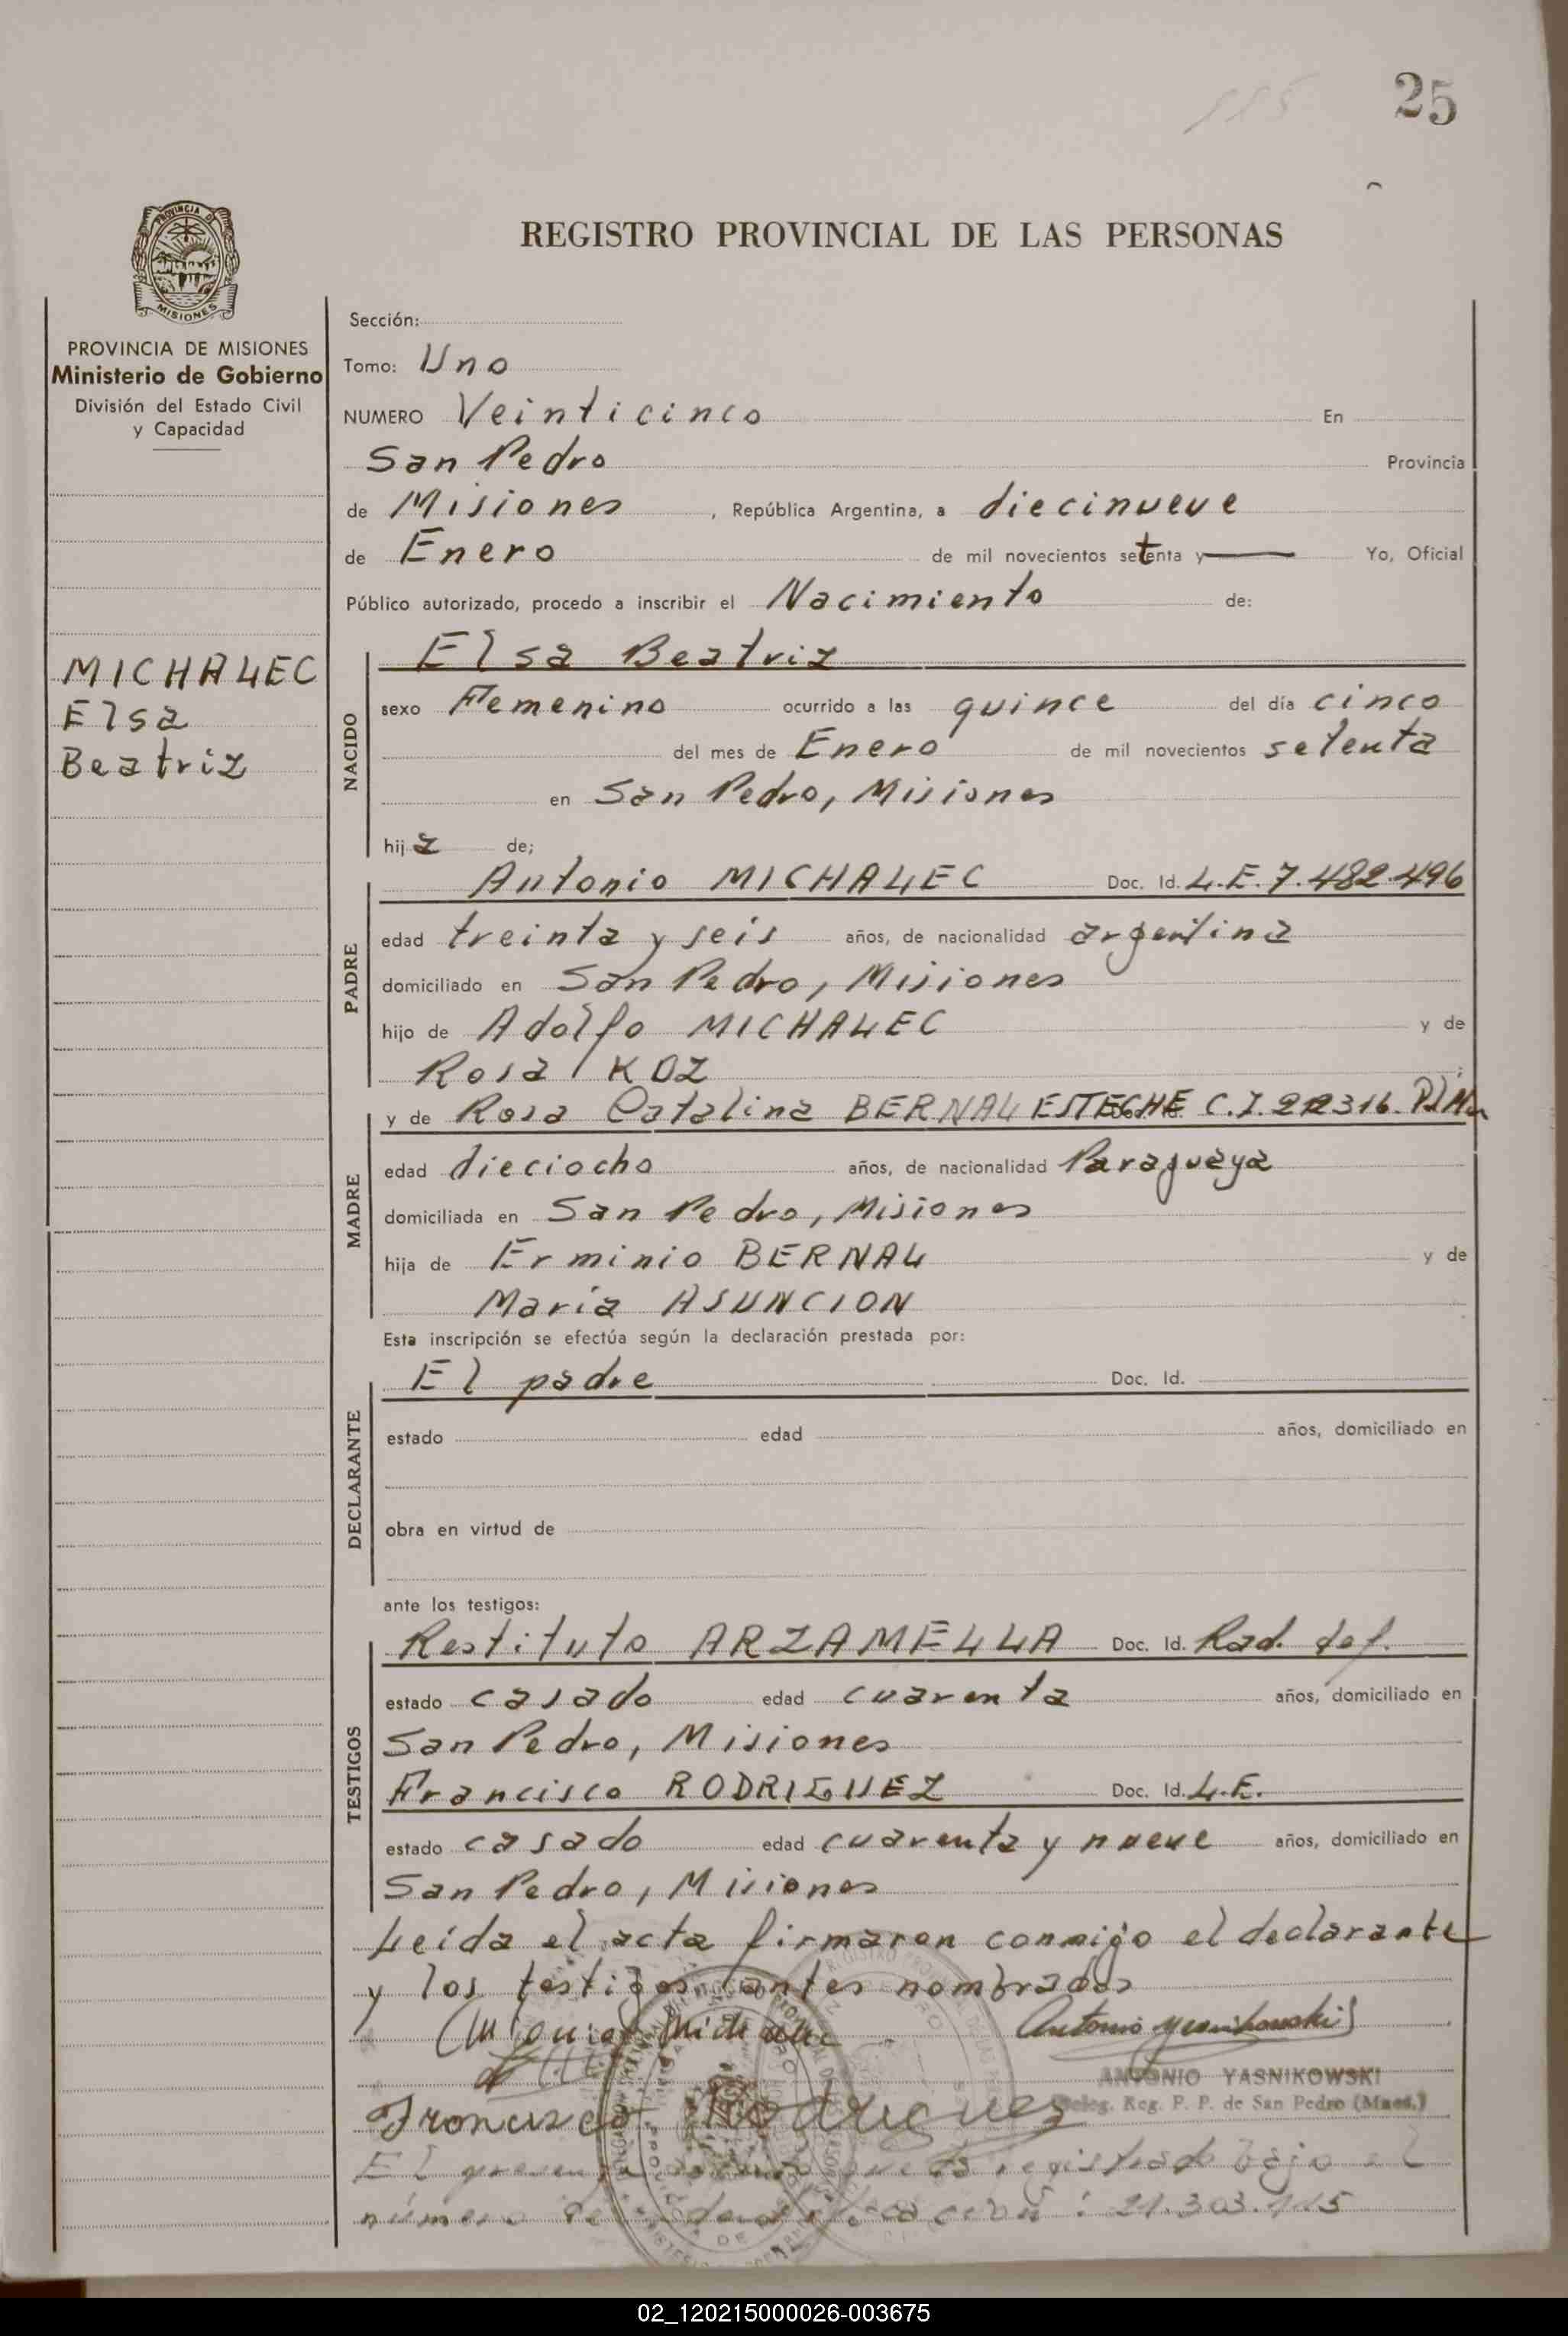 25
REGISTRO PROVINCIAL DE LAS PERSONAS
PROVINCIA DE MISIONES
Ministerio de Gobierno
División del Estado Civil
y Capacidad
MICHALEC
Elsa
Beatriz
Sección:
Tomo: Uno
NUMERO Veinticinco En
San Pedro Provincia
de Misiones , República Argentina, a diecinueve
de Enero de mil novecientos setenta y Yo, Oficial
Público autorizado, procedo a inscribir el Nacimiento de:
NACIDO
Elsa Beatriz
sexo Femenino ocurrido a las quince del día cinco
del mes de Enero de mil novecientos setenta
en San Pedro, Misiones
hija de;
PADRE
Antonio MICHALEC Doc. Id. L.E. 7.482.496
edad treinta y seis años, de nacionalidad argentina
domiciliado en San Pedro, Misiones
hijo de Adolfo MICHALEC y de
Rosa KOZ ;
MADRE
y de Rosa Catalina BERNAL ESTECHE C.I.
edad dieciocho años, de nacionalidad Paraguaya
domiciliada en San Pedro, Misiones
hija de Erminio BERNAL y de
Maria ASUNCION
Esta inscripción se efectúa según la declaración prestada por:
DECLARANTE
El padre Doc. Id.
estado edad años, domiciliado en
obra en virtud de
ante los testigos:
TESTIGOS
Restituto ARZAMELLA Doc. Id. Rad. def.
estado casado edad cuarenta años, domiciliado en
San Pedro, Misiones
Francisco RODRIGUEZ Doc. Id. L.E.
estado casado edad cuarenta y nueve años, domiciliado en
San Pedro, Misiones
Leída el acta firmaron conmigo el declarante
y los testigos antes nombrados
Antonio Yasnikowski
ANTONIO YASNIKOWSKI
Deleg. Reg. P. P. de San Pedro (Mnes.)
Francisco Rodriguez
El presente registrado bajo el
número de : 21.303.115
02_120215000026-003675